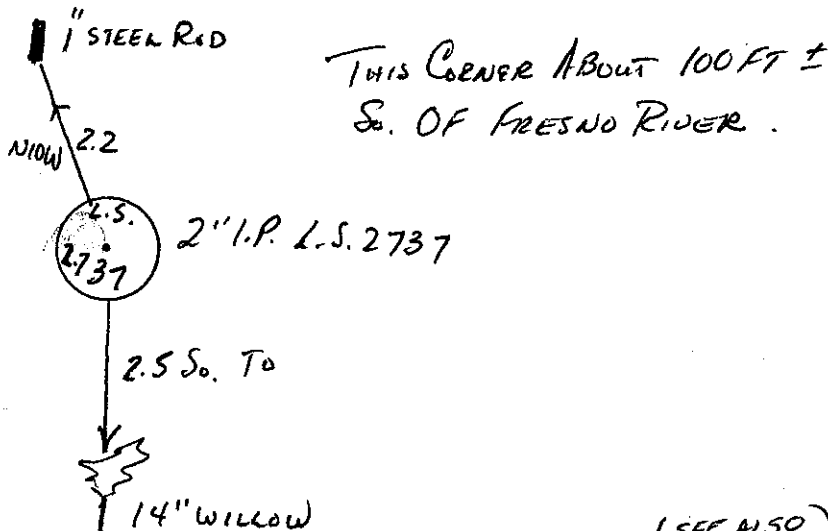 1" STEEL ROD
THIS CORNER ABOUT 100 FT ±
SO. OF FRESNO RIVER.
N10W 2.2
L.S.
2737
2" I.P. L.S. 2737
2.5 SO. TO
14" WILLOW
(SEE ALSO)